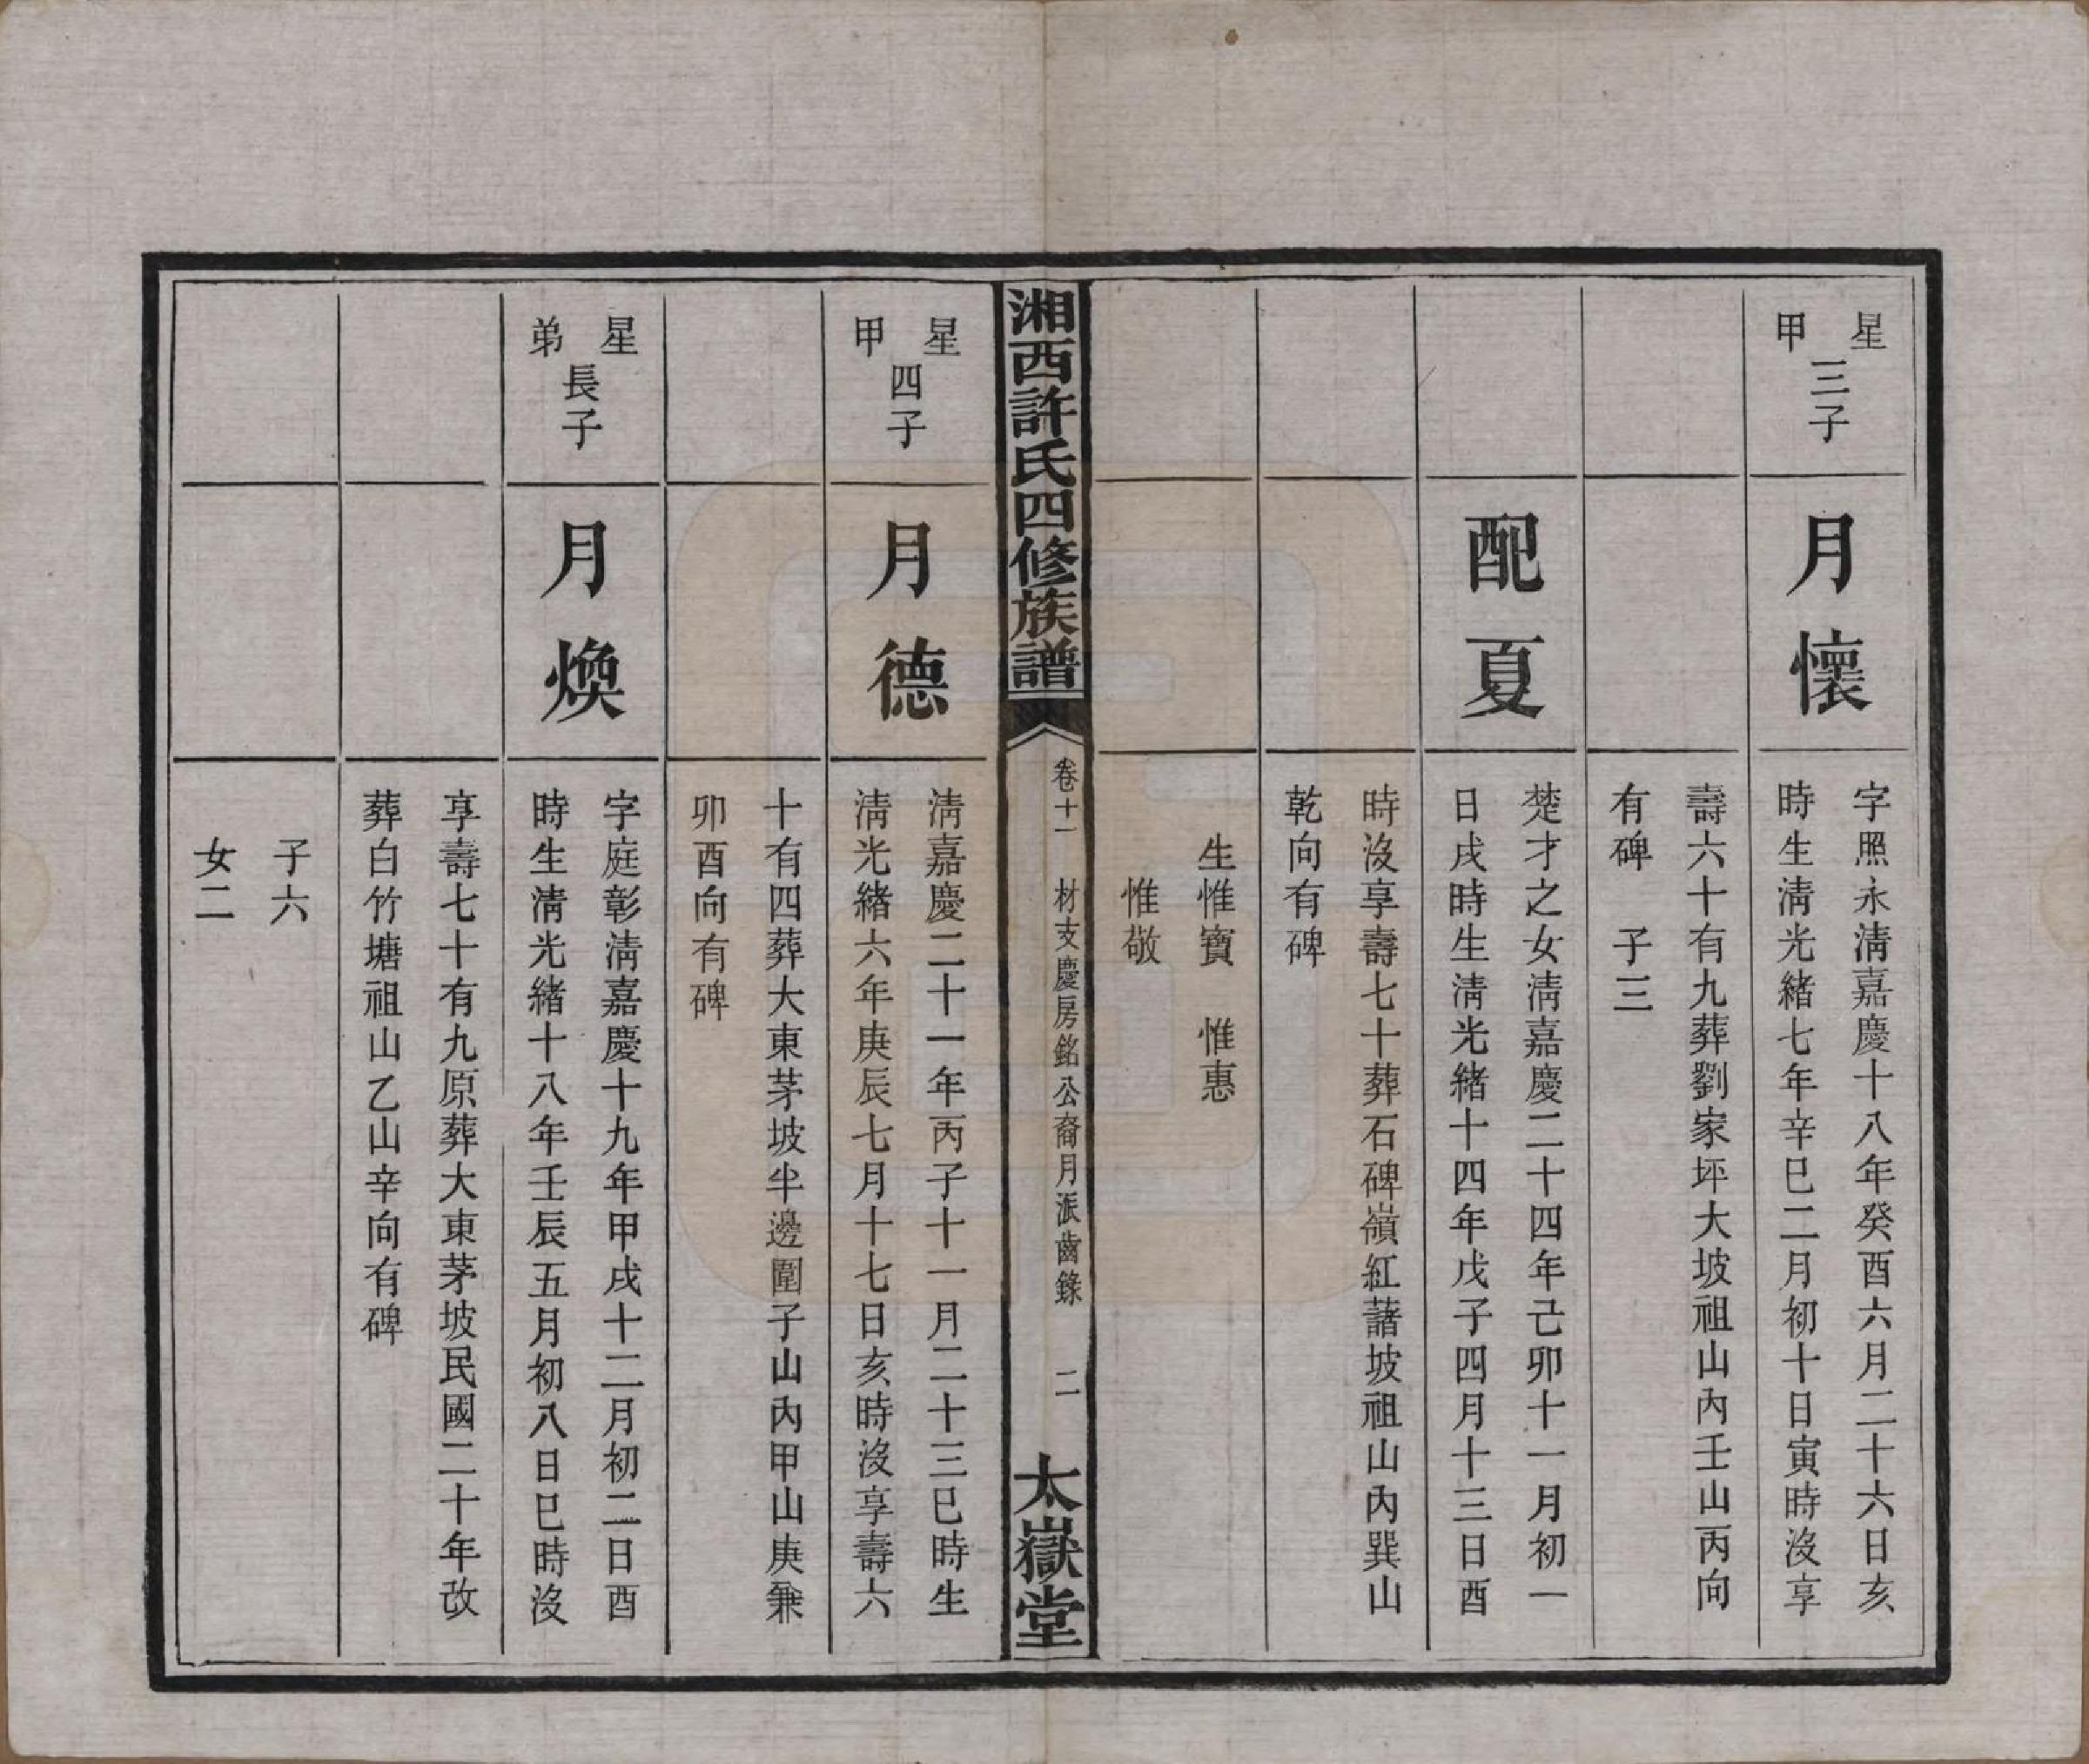 星甲三子
月懷
字照永淸嘉慶十八年癸酉六月二十六日亥
時生淸光緒七年辛巳二月初十日寅時沒享
壽六十有九葬劉家坪大坡祖山內壬山丙向
有碑　子三
配夏
楚才之女淸嘉慶二十四年己卯十一月初一
日戌時生淸光緒十四年戊子四月十三日酉
時沒享壽七十葬石碑嶺紅藷坡祖山內巽山
乾向有碑
生惟寶　惟惠
惟敬
湘西許氏四修族譜
卷十一　材支慶房銘公裔月派齒錄　二
太嶽堂
星甲四子
月德
淸嘉慶二十一年丙子十一月二十三巳時生
淸光緒六年庚辰七月十七日亥時沒享壽六
十有四葬大東茅坡半邊圍子山內甲山庚兼
卯酉向有碑
星弟長子
月煥
字庭彰淸嘉慶十九年甲戌十二月初二日酉
時生淸光緒十八年壬辰五月初八日巳時沒
享壽七十有九原葬大東茅坡民國二十年改
葬白竹塘祖山乙山辛向有碑
子六
女二